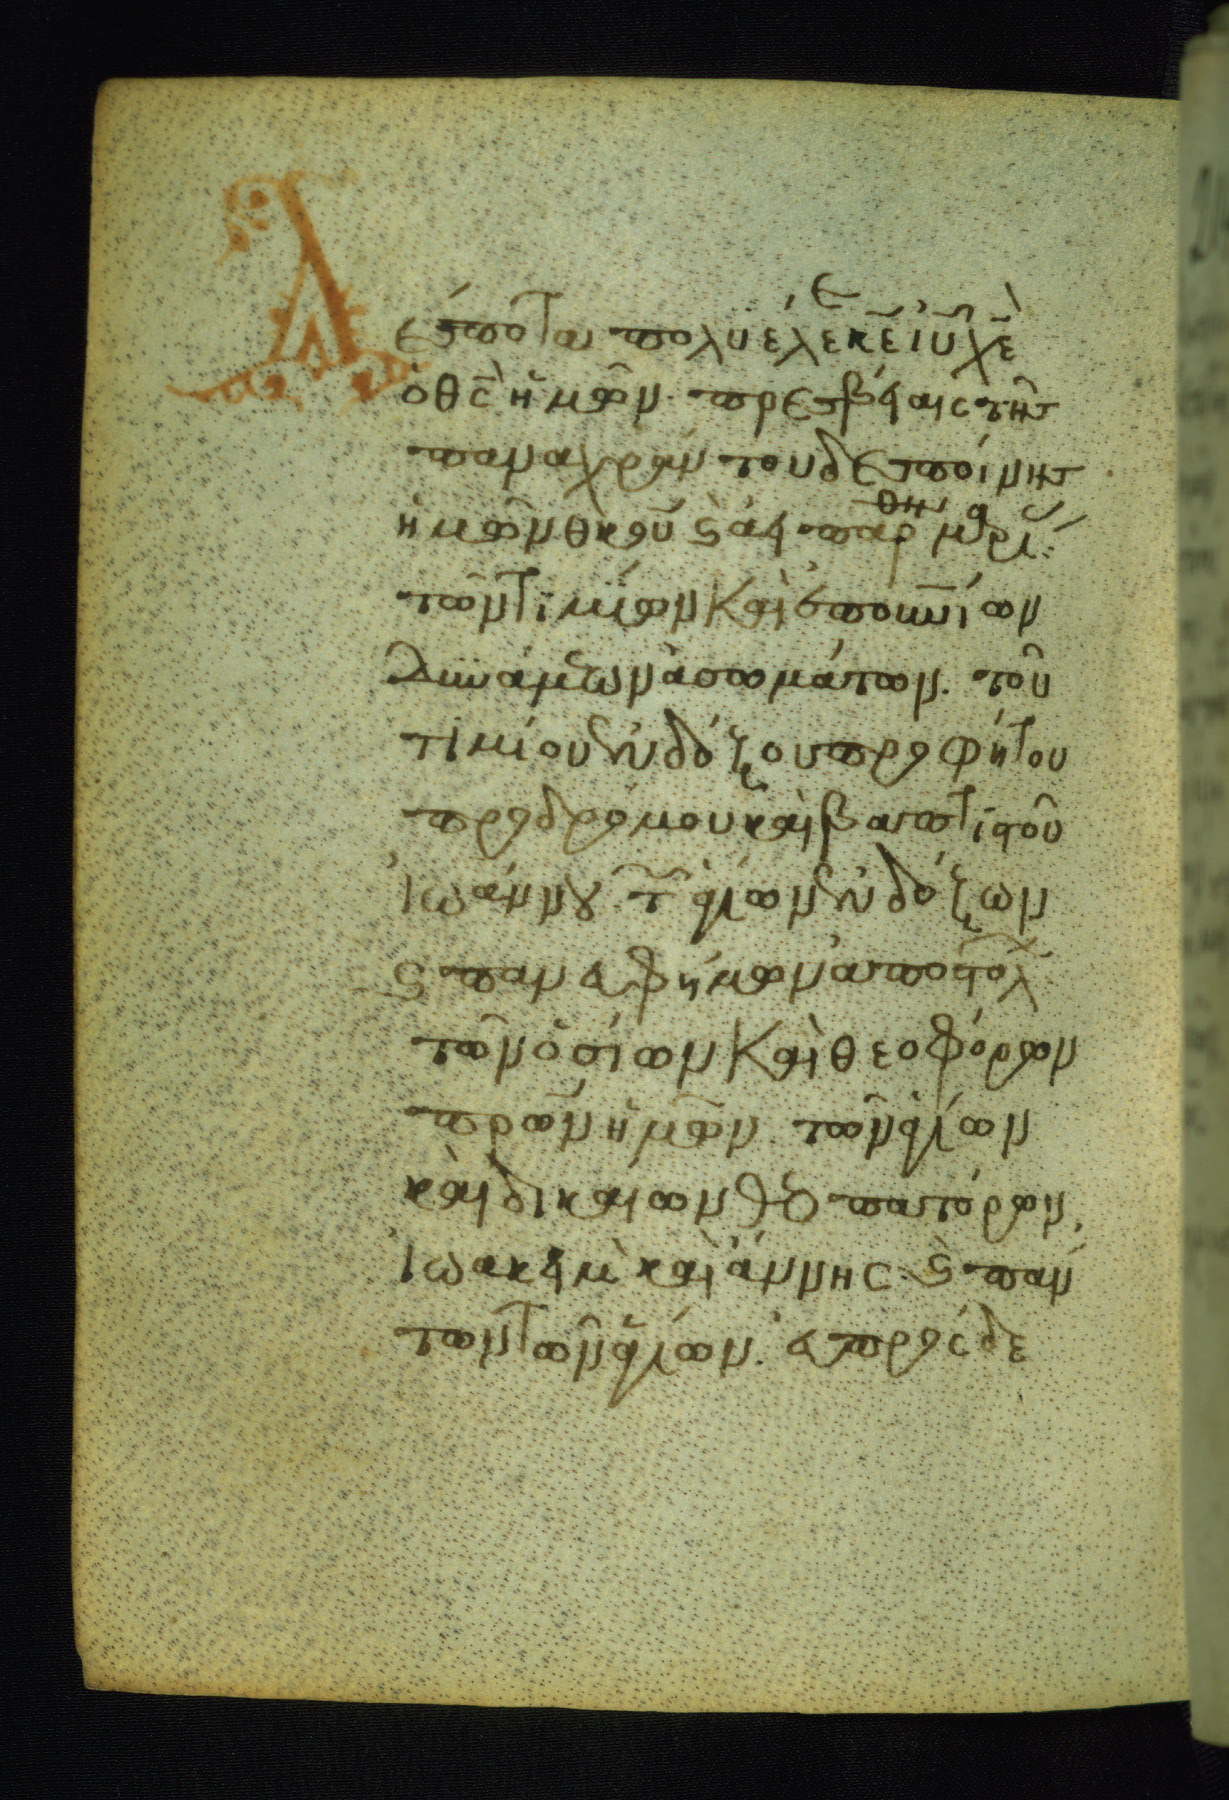 Δέσποτα πολυέλεε κε ιυ χε
ὁ θς ἡμῶν. πρεσβείαις τῆς
παναχράντου δεσποίνης
ἡμῶν θκου ϛ ἀειπαρθ μρί:
τῶν τιμίων καὶ ἐπουνίων
δυνάμεων ἀσωμάτων. τοῦ
τιμίου ἐνδόξου προφήτου
προδρόμου καὶ βαπτιστοῦ
ἰωάννου. τ ἁγίων ἐνδόξων
ϛ πανευφήμων ἀποστολ
τῶν ὁσίων καὶ θεοφόρων
πρων ἡμῶν. τῶν ἁγίων
καὶ δικαίων θεοπατόρων,
ἰωακεὶμ καὶ ἄννης. ϛ πάν
των τῶν ἁγίων. εὐπρόσδε